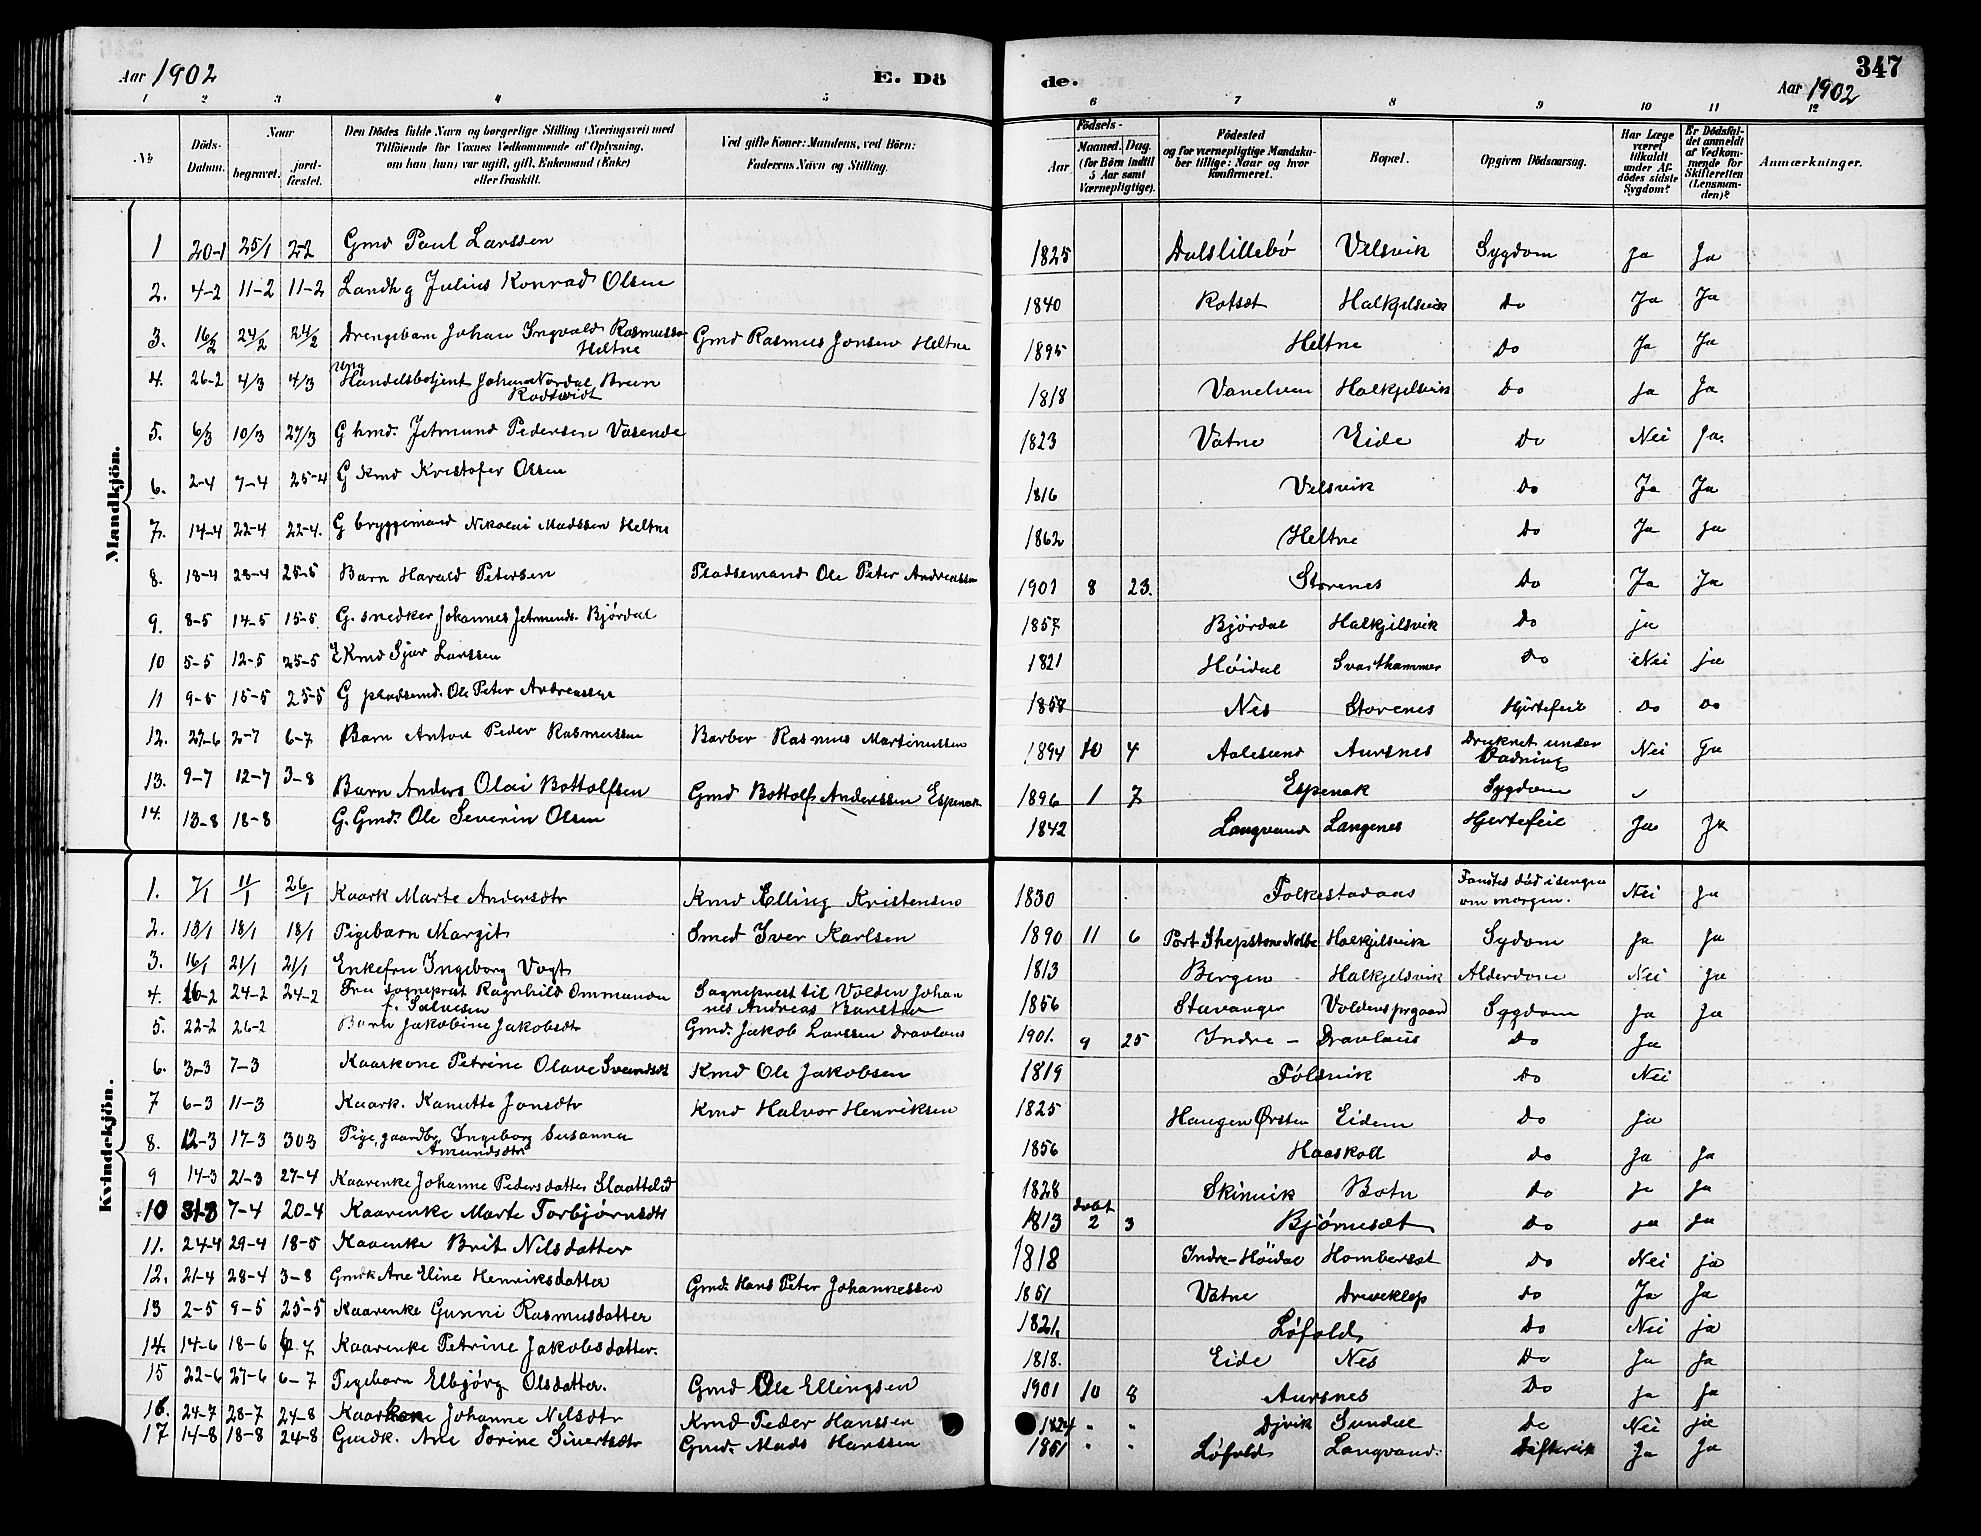 Aar 1902 E. Dö
de. 347
Aar 1902
1 2 3 4 5
6 7 8 9 10 11 12
No
Döds-
Datum.
Naar
begravet.
jord-
fæstet.
Den Dödes fulde Navn og borgerlige Stilling (Næringsvei) med
Tilföiende for Voxnes Vedkommende af Oplysning,
om han (hun) var ugift, gift, Enkemand (Enke)
eller fraskilt.
Ved gifte Koner: Mandens, ved Börn:
Faderens Navn og Stilling.
Födsels-
Aar
Maaned.
Dag.
(for Börn indtil
5 Aar samt
Værnepligtige).
Födested
og for værnepligtige Mandsku-
ber tillige: Naar og hvor
konfirmeret.
Bopæl.
Opgiven Dödsaarsag.
Har Læge
været
tilkaldt
under Af-
dödes sidste
Sygdom?
Er Dödsfal-
det anmeldt
af Vedkom-
mende for
Skifteretten
(Lensman-
den)?
Anmærkninger.
Mandkjön.
1 20-1 25/1 2-2 Gmd Paul Larssen 1825 Dalslillebø Velsvik Sygdom Ja Ja
2. 4-2 11-2 11-2 Landhg Julius Konrad Olsen 1840 Rotset Halkjelsvik Do Ja Ja
3. 16/2 24/2 24/2 Drengebarn Johan Ingvald Rasmussen
Heltne Gmd Rasmus Jonsen Heltne 1895 Heltne Do Ja Ja
4. 26-2 4/3 4/3 ung
Handelsbetjent Johan Nordal Brun
Rodtwidt 1818 Vanelven Halkjelsvik Do Ja Ja
5. 6/3 10/3 27/3 G kmd. Jetmund Pedersen Vasende 1823 Vatne Eide Do Nei Ja.
6. 2-4 7-4 25-4 G Kmd Kristofer Olsen 1816 Velsvik Do Ja Ja
7. 14-4 22-4 22-4. G bryggemand Nikolai Madssen Heltne 1862 Heltne Do Ja Ja
8. 18-4 28-4 25-5 Barn Harald Petersen Pladsemand Ole Peter Andreassen 1901 8 23. Storenes Do Ja Ja
9. 8-5 14-5 15-5. G. snedker Johannes Jetmunds. Bjørdal 1857 Bjørdal Halkjelsvik Do ja
10 5-5 12-5 25-5 E Kmd Sjur Larssen 1821 Høidal Svarthammer Do Nei ja
11 9-5 15-5 25-5 G pladsemd. Ole Peter Andreassen 1858 Nes Storenes Hjertefeil Do Do
12. 27-6 2-7 6-7 Barn Anton Peder Rasmussen Barber Rasmus Martinussen 1894 10 4 Aalesund Aursnes Druknet under
Badning Nei Ja
13. 9-7 12-7 3-8 Barn Anders Olai Bottolfsen Gmd Bottolf Anderssen Espenak 1896 1 7 Espenak Sygdom
14. 13-8 18-8 G. Gmd. Ole Severin Olsen 1842 Langvand Langenes Hjertefeil Ja Ja
Kvindekjön.
1. 7/1 11/1 26/1 Kaark Marte Andersdtr Kmd Elling Kristensen 1830 Folkestadaas Fandtes død i sengen
om morgen. Nei Ja
2. 13/1 18/1 18/1 Pigebarn Margit Smed Iver Karlsen 1890 11 6 Port Shepstone Natbe Halkjelsvik Sydom Ja Ja
3. 16/1 21/1 21/1 Enkefru Ingeborg Vogt 1813 Bergen Halkjelsvik Alderdom Nei Ja
4. 16-2 24-2 24-2 Fru sogneprest Ragnhild Ommunda
f. Salvesen Sogneprest til Volden Johan
nes Andreas Barstad 1856 Stavanger Voldens prgaard Sygdom Ja Ja
5. 22-2 26-2 Barn Jakobine Jakobsdt Gmd. Jakob Larssen Dravlaus 1901. 9 25 Indre - Dravlaus Do Ja
6. 3-3 7-3 Kaarkone Petrine Olave Sveindsdt Kmd Ole Jakobsen 1819 Følsvik Do Nei
7 6-3 11-3 Kaark. Kanutte Jonsdtr Kmd Halvor Henriksen 1825 Haugen Ørsten Eidem Do Ja
8. 12-3 17-3 303 Pige, gaardbr. Ingeborg Susanna
Amundsdtr 1856 Haaskoll Do Ja Ja
9 14-3 21-3 27-4 Kaarenke Johanne Pedersdatter Slaattelid 1828 Skinvik Botn Do Ja Ja
10 31-3 7-4 20-4 Kaarenke Marte Torbjørnsdt 1813 døbt
2 3 Bjørneset Do Ja Ja
11. 24-4 29-4 18-5 Kaarenke Brit Nilsdatter 1818 Indre-Høidal Homberset Do Nei ja
12. 21-4 28-4 3-8 Gmdk Ane Eline Henriksdatter Gmd. Hans Peter Johannessen 1851 Vatne Driveklep Do Ja Ja
13 2-5 9-5 25-5 Kaarenke Gunni Rasmusdatter 1821. Løfold Do Nei ja
14. 14-6 18-6 6-7 Kaarenke Petrine Jakobsdatter. 1818. Eide Nes Do Ja Ja
15 22-6 27-6 6-7 Pigebarn Elbjørg Olsdatter. Gmd Ole Ellingsen 1901 10 8 Aursnes Do Ja Ja
16. 24-7 28-7 24-8 Kaarkone Johanne Nilsdtr Kmd Peder Hanssen 1824 " " Djvik Sundal Do Nei ja
17 14-8 18-8 24-8 Gmdk. Ane Torine Sivertsdtr Gmd. Mads Hanssen 1851 " " Løfold Langvand. Difterik Ja Ja